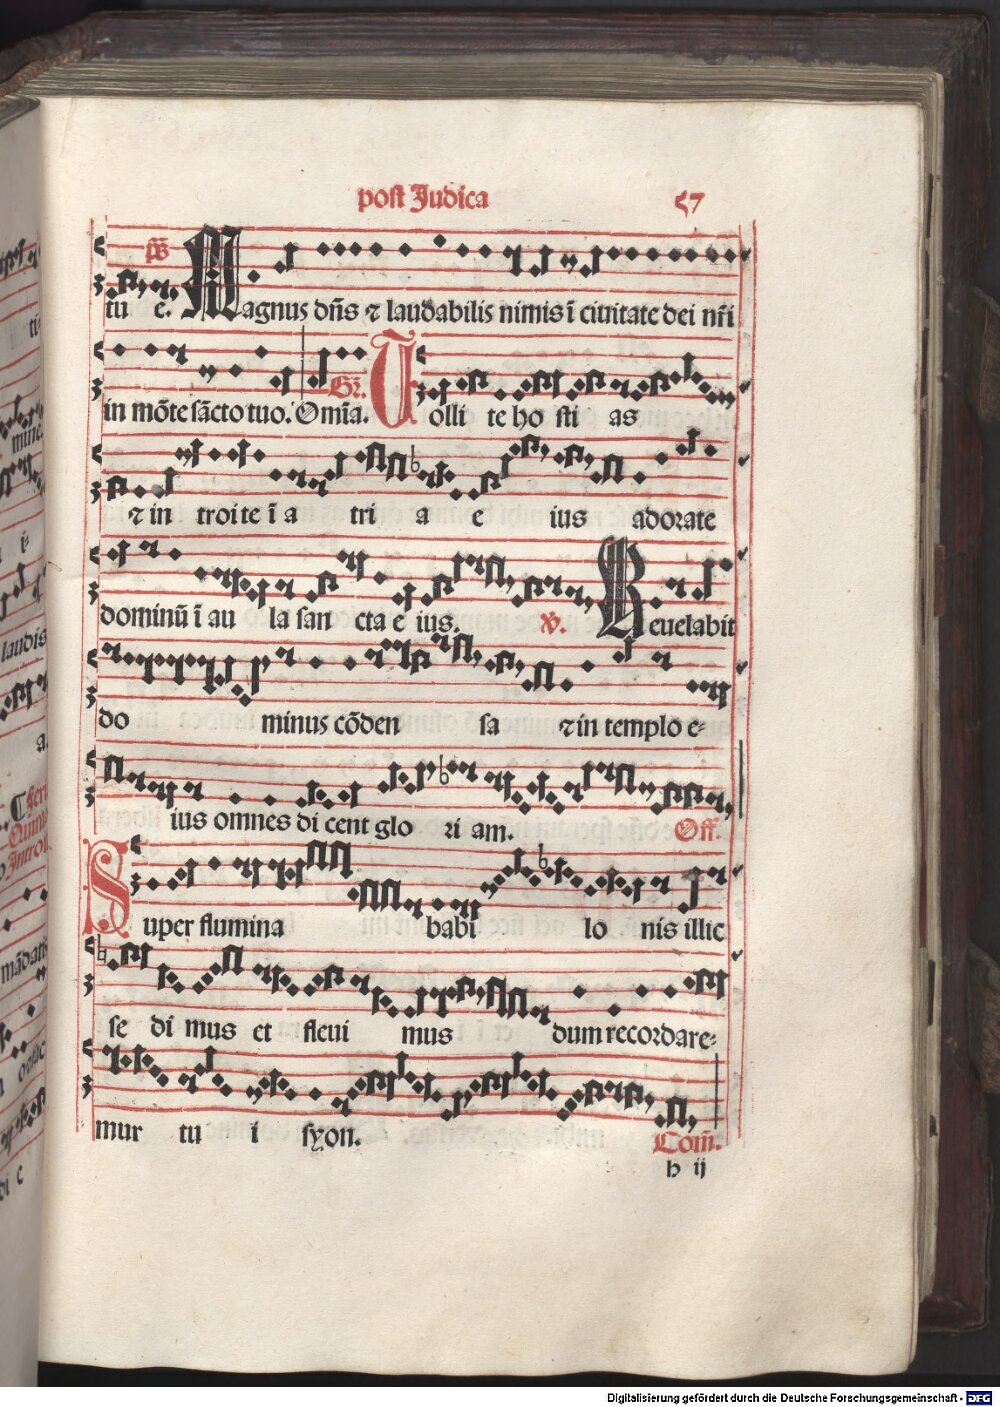 post Judica 57
ps̄
tu e. Magnus dn̄s ⁊ laudabilis nimis ī ciuitate dei nr̄i
in mōte sācto tuo. Om̄ia. Gr̄. Tolli te ho sti as
⁊ in troi te ī a tri a e ius adorate
dominū ī au la san cta e ius. V. Reuelabit
do minus cōden sa ⁊ in templo e-
ius omnes di cent glo ri am. Off.
Super flumina babi lo nis illic
se di mus et fleui mus dum recordare-
mur tu i syon. Com̄.
h ij
ti-
mine.
i-
laudis
a.
Quinta
Introi.
mādatis
di e
Digitalisierung gefördert durch die Deutsche Forschungsgemeinschaft - DFG